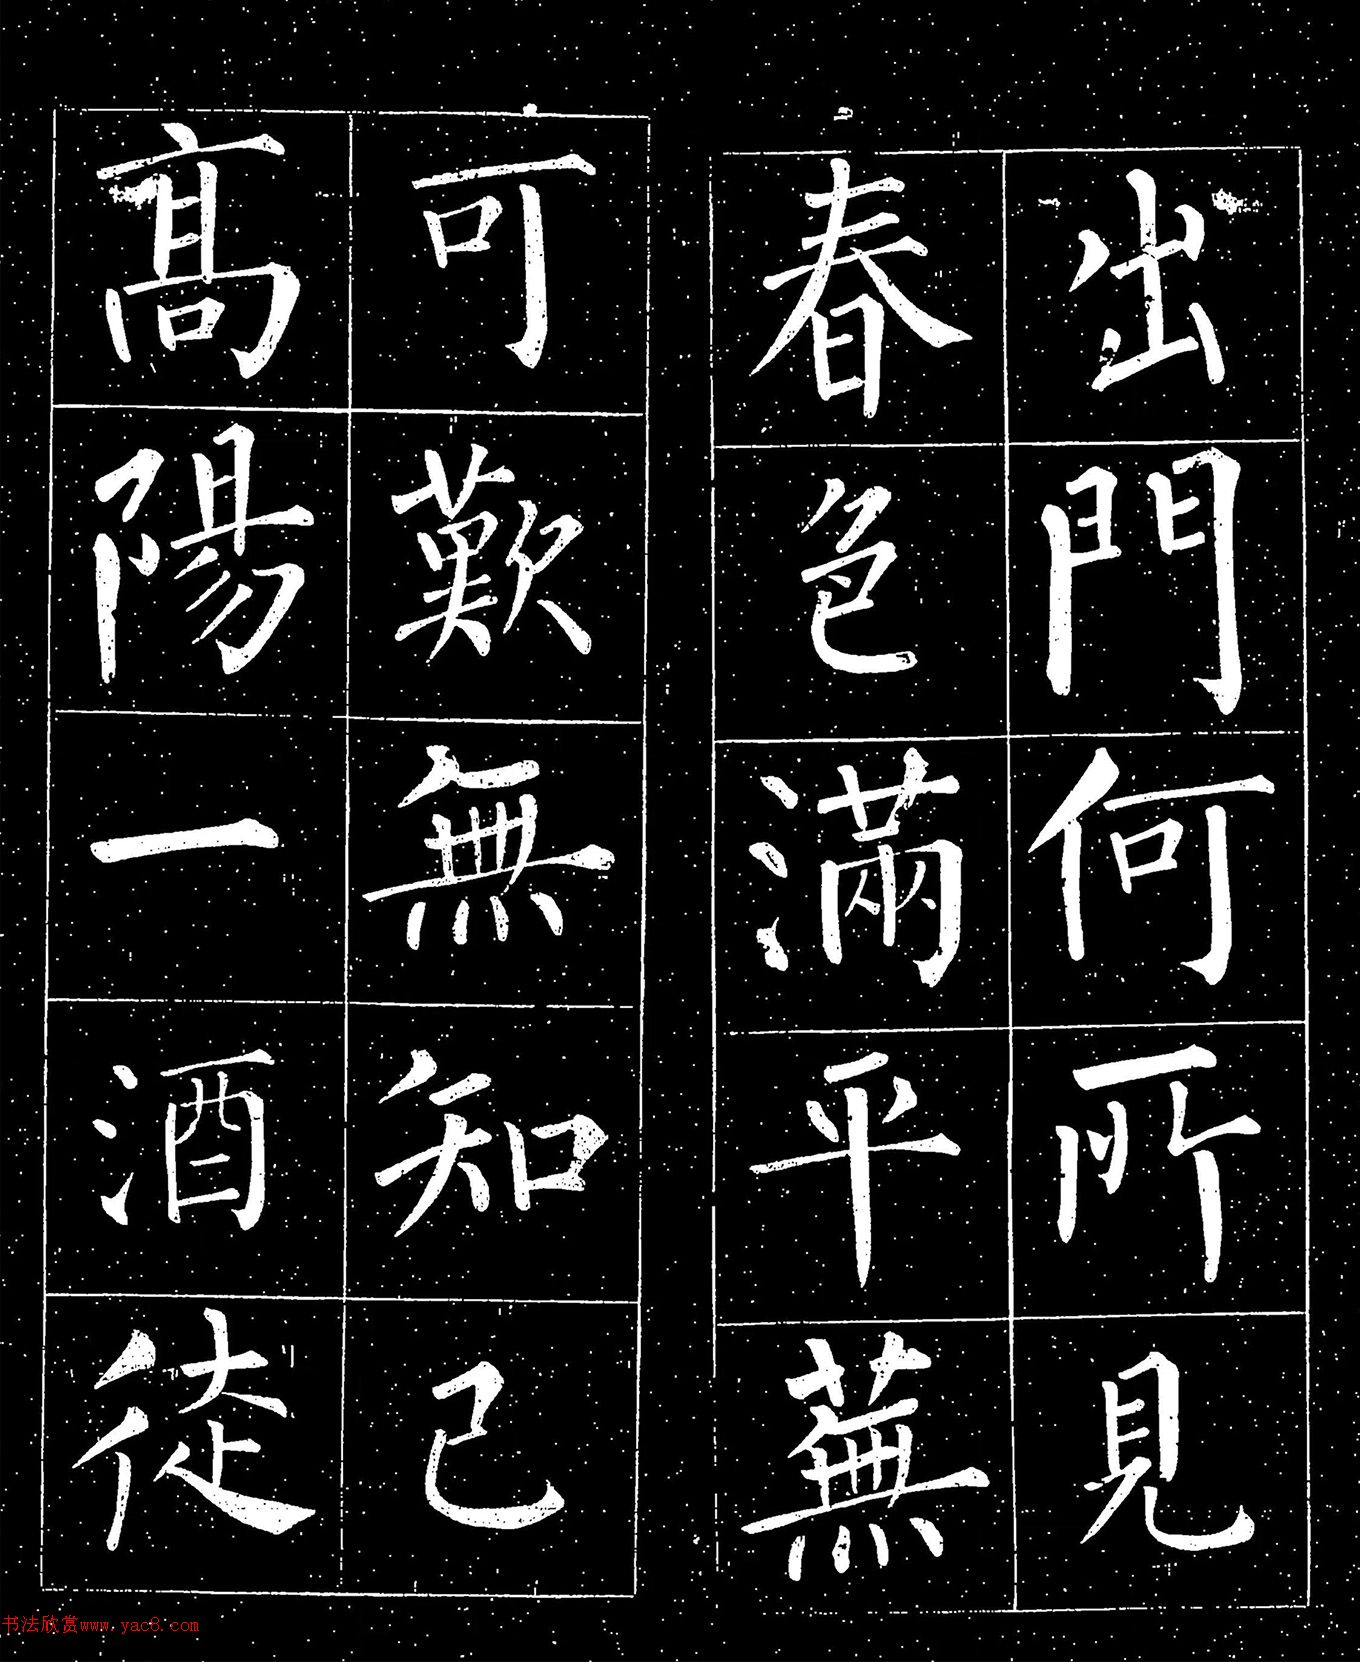 出門何所見
春色滿平蕪
可歎無知己
高陽一酒徒
书法欣赏www.yac8.com